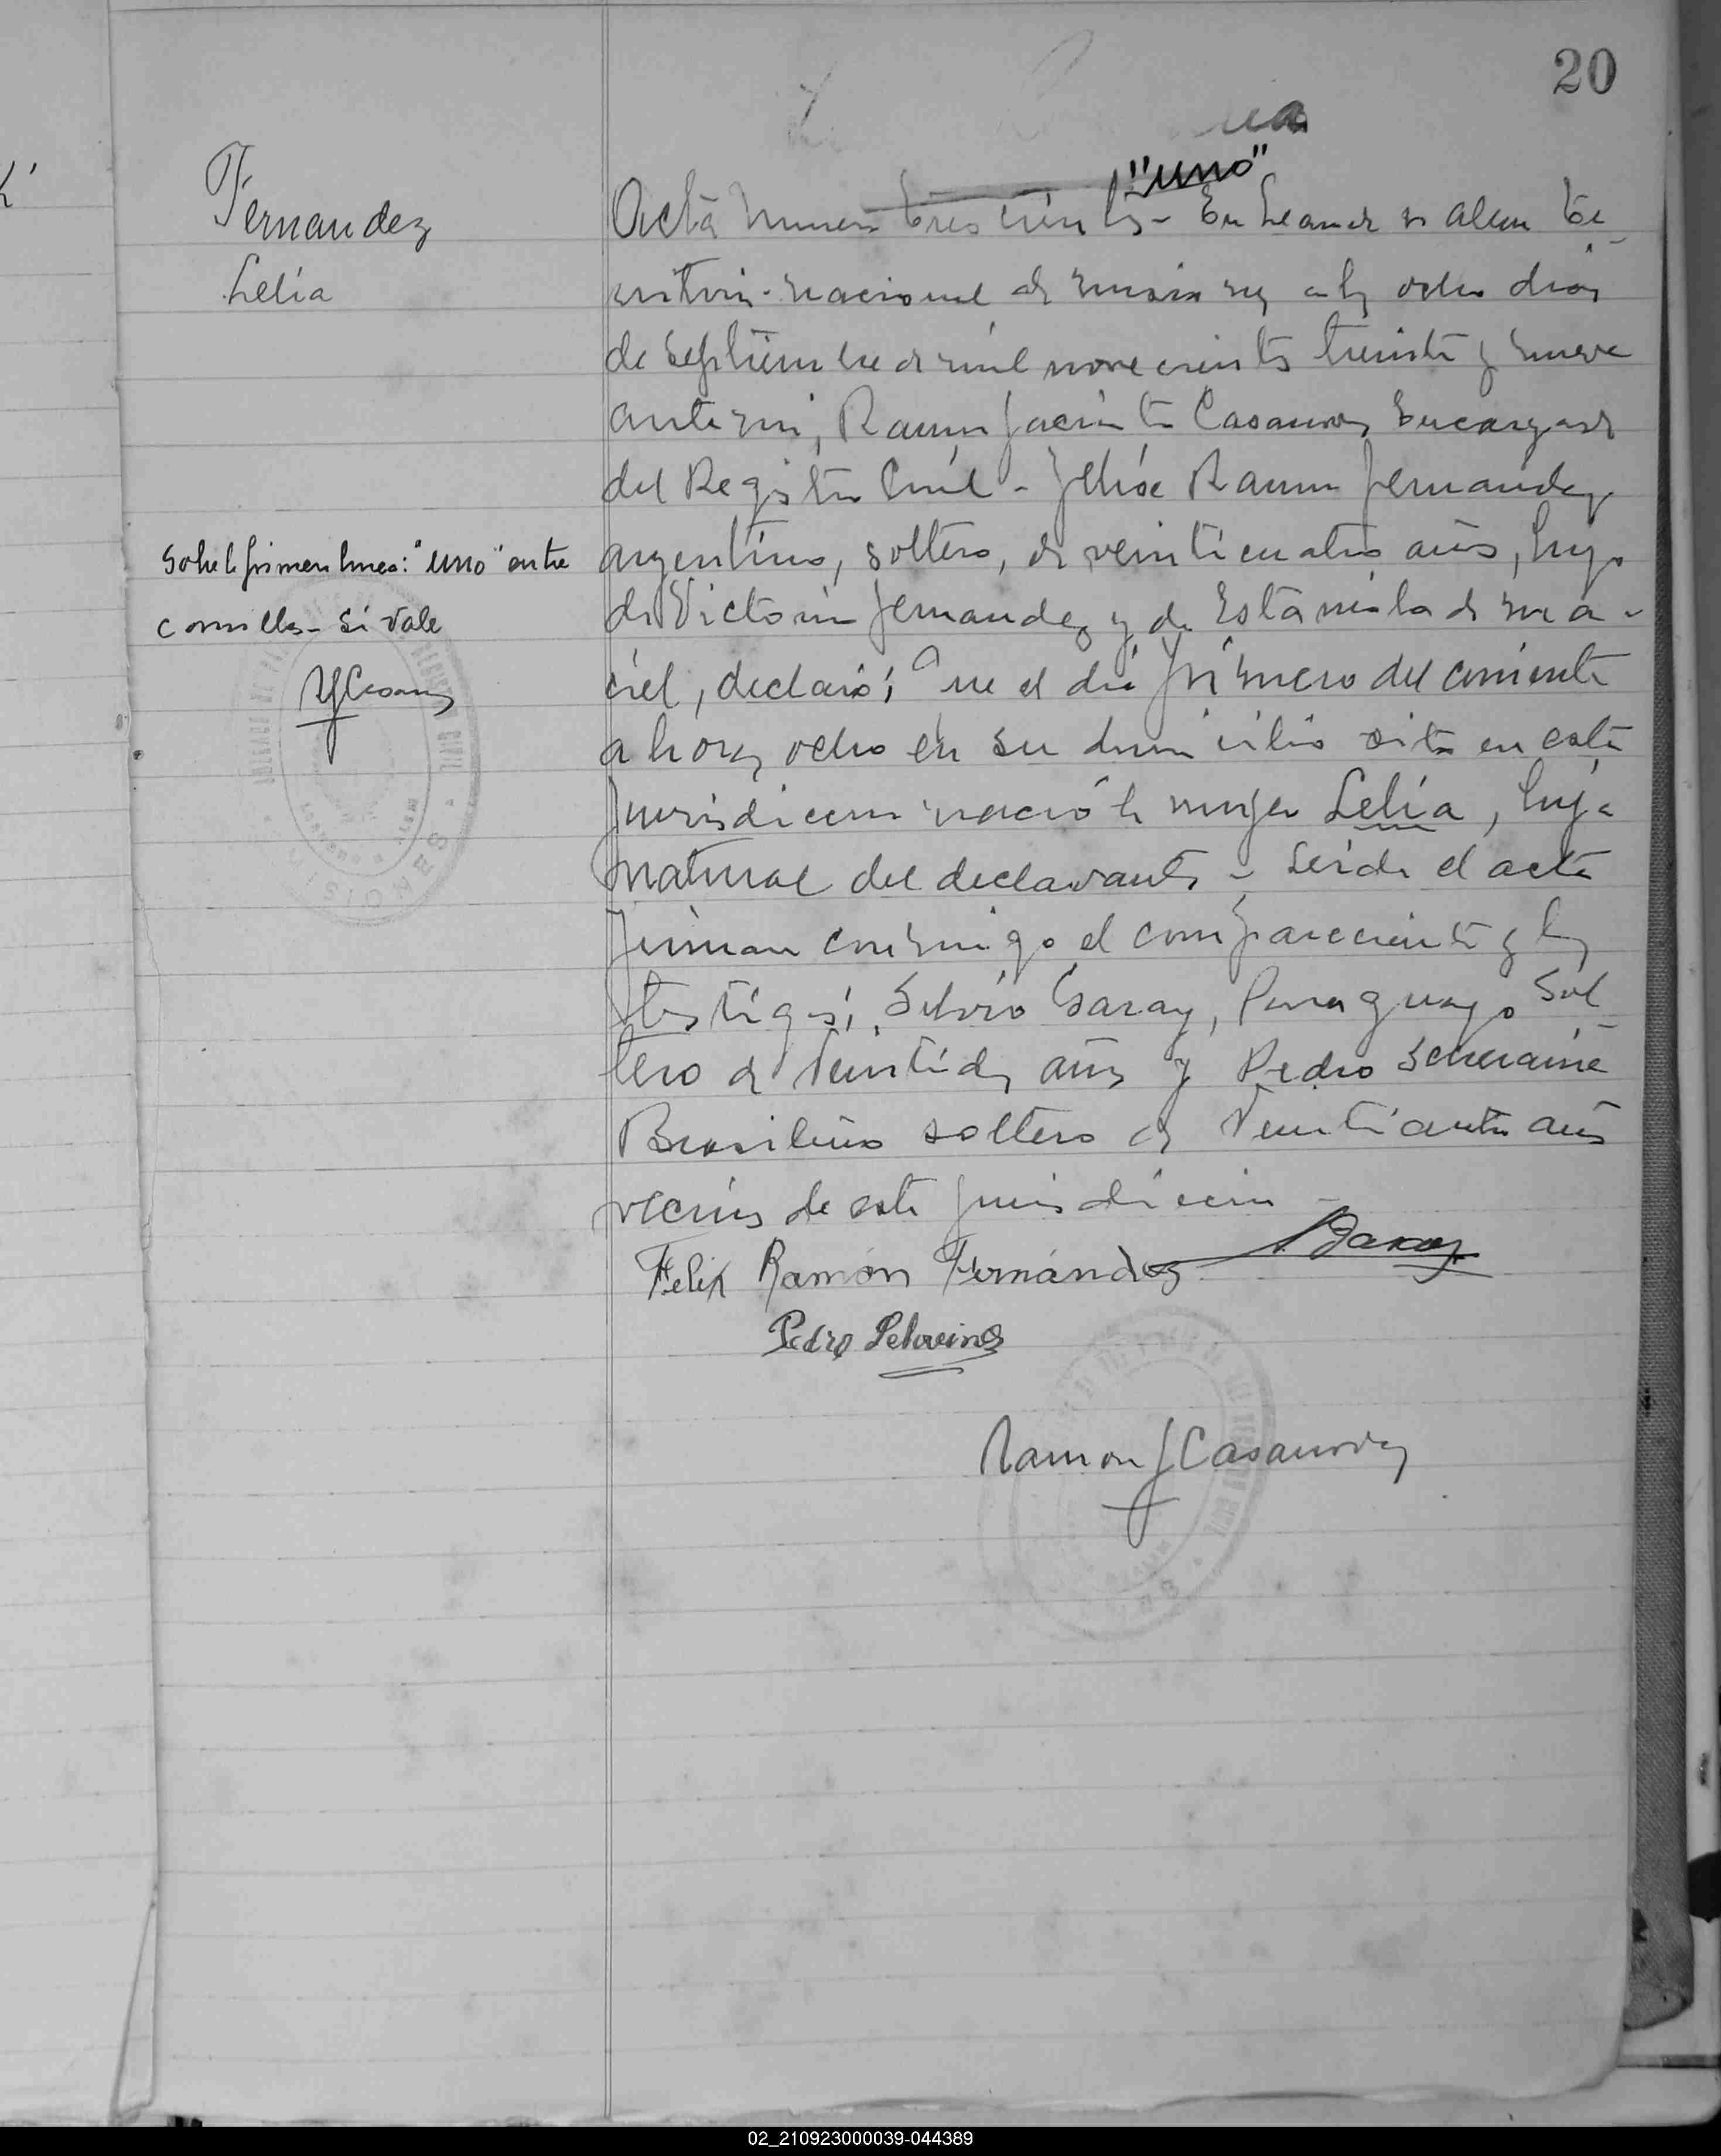 20
"uno"
Fernandez
Lelia
Acta numero trescientos - En Leandro N Alem te-
rritorio nacional de misiones a los ocho dias
de Septiembre de mil novecientos treinta y nueve
ante mi, Ramon Jacinto Casanova, Encargado
del Registro Civil - Felix Ramon Fernandez
argentino, soltero, de veinticuatro años, hijo
de Victorin Fernandez y de Estanislada ma-
ciel, declaró; Que el dia primero del corriente
a horas ocho en su domicilio sito en esta
jurisdiccion nació la mujer Lelia, hija
natural del declarante - Leida el acta
firman conmigo el compareciente y los
testigos; Silvio Garay, Paraguayo Sol-
tero de veintidos años y Pedro
Brasilero soltero de veinticuatro años
vecinos de esta jurisdiccion -
Sobre la primera linea: "uno" entre
comillas - Si Vale
RJCasanova
Felix Ramón Fernández
SGaray
Pedro
Ramon J Casanova
REGISTRO CIVIL
MISIONES
02_210923000039-044389